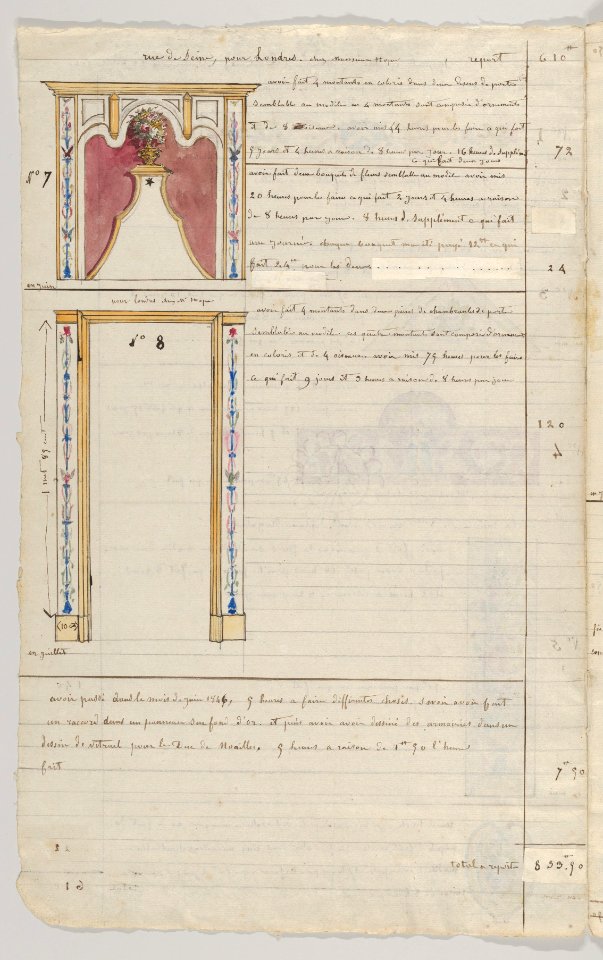 rue de Seine, pour Londres. chez Monsieur Hope , report 610 tt
avoir fait 4 montants en coloris dans deux dessus de portes
semblable au modèle ces 4 montants sont composé d'ornements
et de 8 avoir mis 44 heures pour les faire ce qui fait
5 jours et 4 heures a raison de 8 heures par jour. 16 heures de supplém 72
ce qui fait deux jours
No 7
avoir fait deux bouquets de fleurs semblable au modèle avoir mis
20 heures pour les faire ce qui fait 2 jours et 4 heures a raison
de 8 heures par jour. 8 heures de supplément ce qui fait
une journée chaque bouquet ma été payé 12 tt ce qui
fait 24 tt pour les deux 24
en juin
pour Londres chez Mr Hope
No 8
avoir fait 4 montants dans deux paires de chambranles de porte
semblable au modèle. ces quatre montants sont composé d'ornem
en coloris et de 4 oiseaux avoir mis 75 heures pour les faire
ce qui fait 9 jours et 3 heures a raison de 8 heures par jour
120
4
1 met 89 cent
en juillet
avoir passé dans le mois de juin 1846, 5 heures a faire differentes choses. savoir avoir fait
un raccord dans un panneau sur fond d'or. et puis avoir avoir dessiné des armoiries dans un
dessin de vitrail pour le Duc de Noailles. 5 heures a raison de 1 tt 50 l'heure
fait 7 tt 50
total a report 833 tt 50